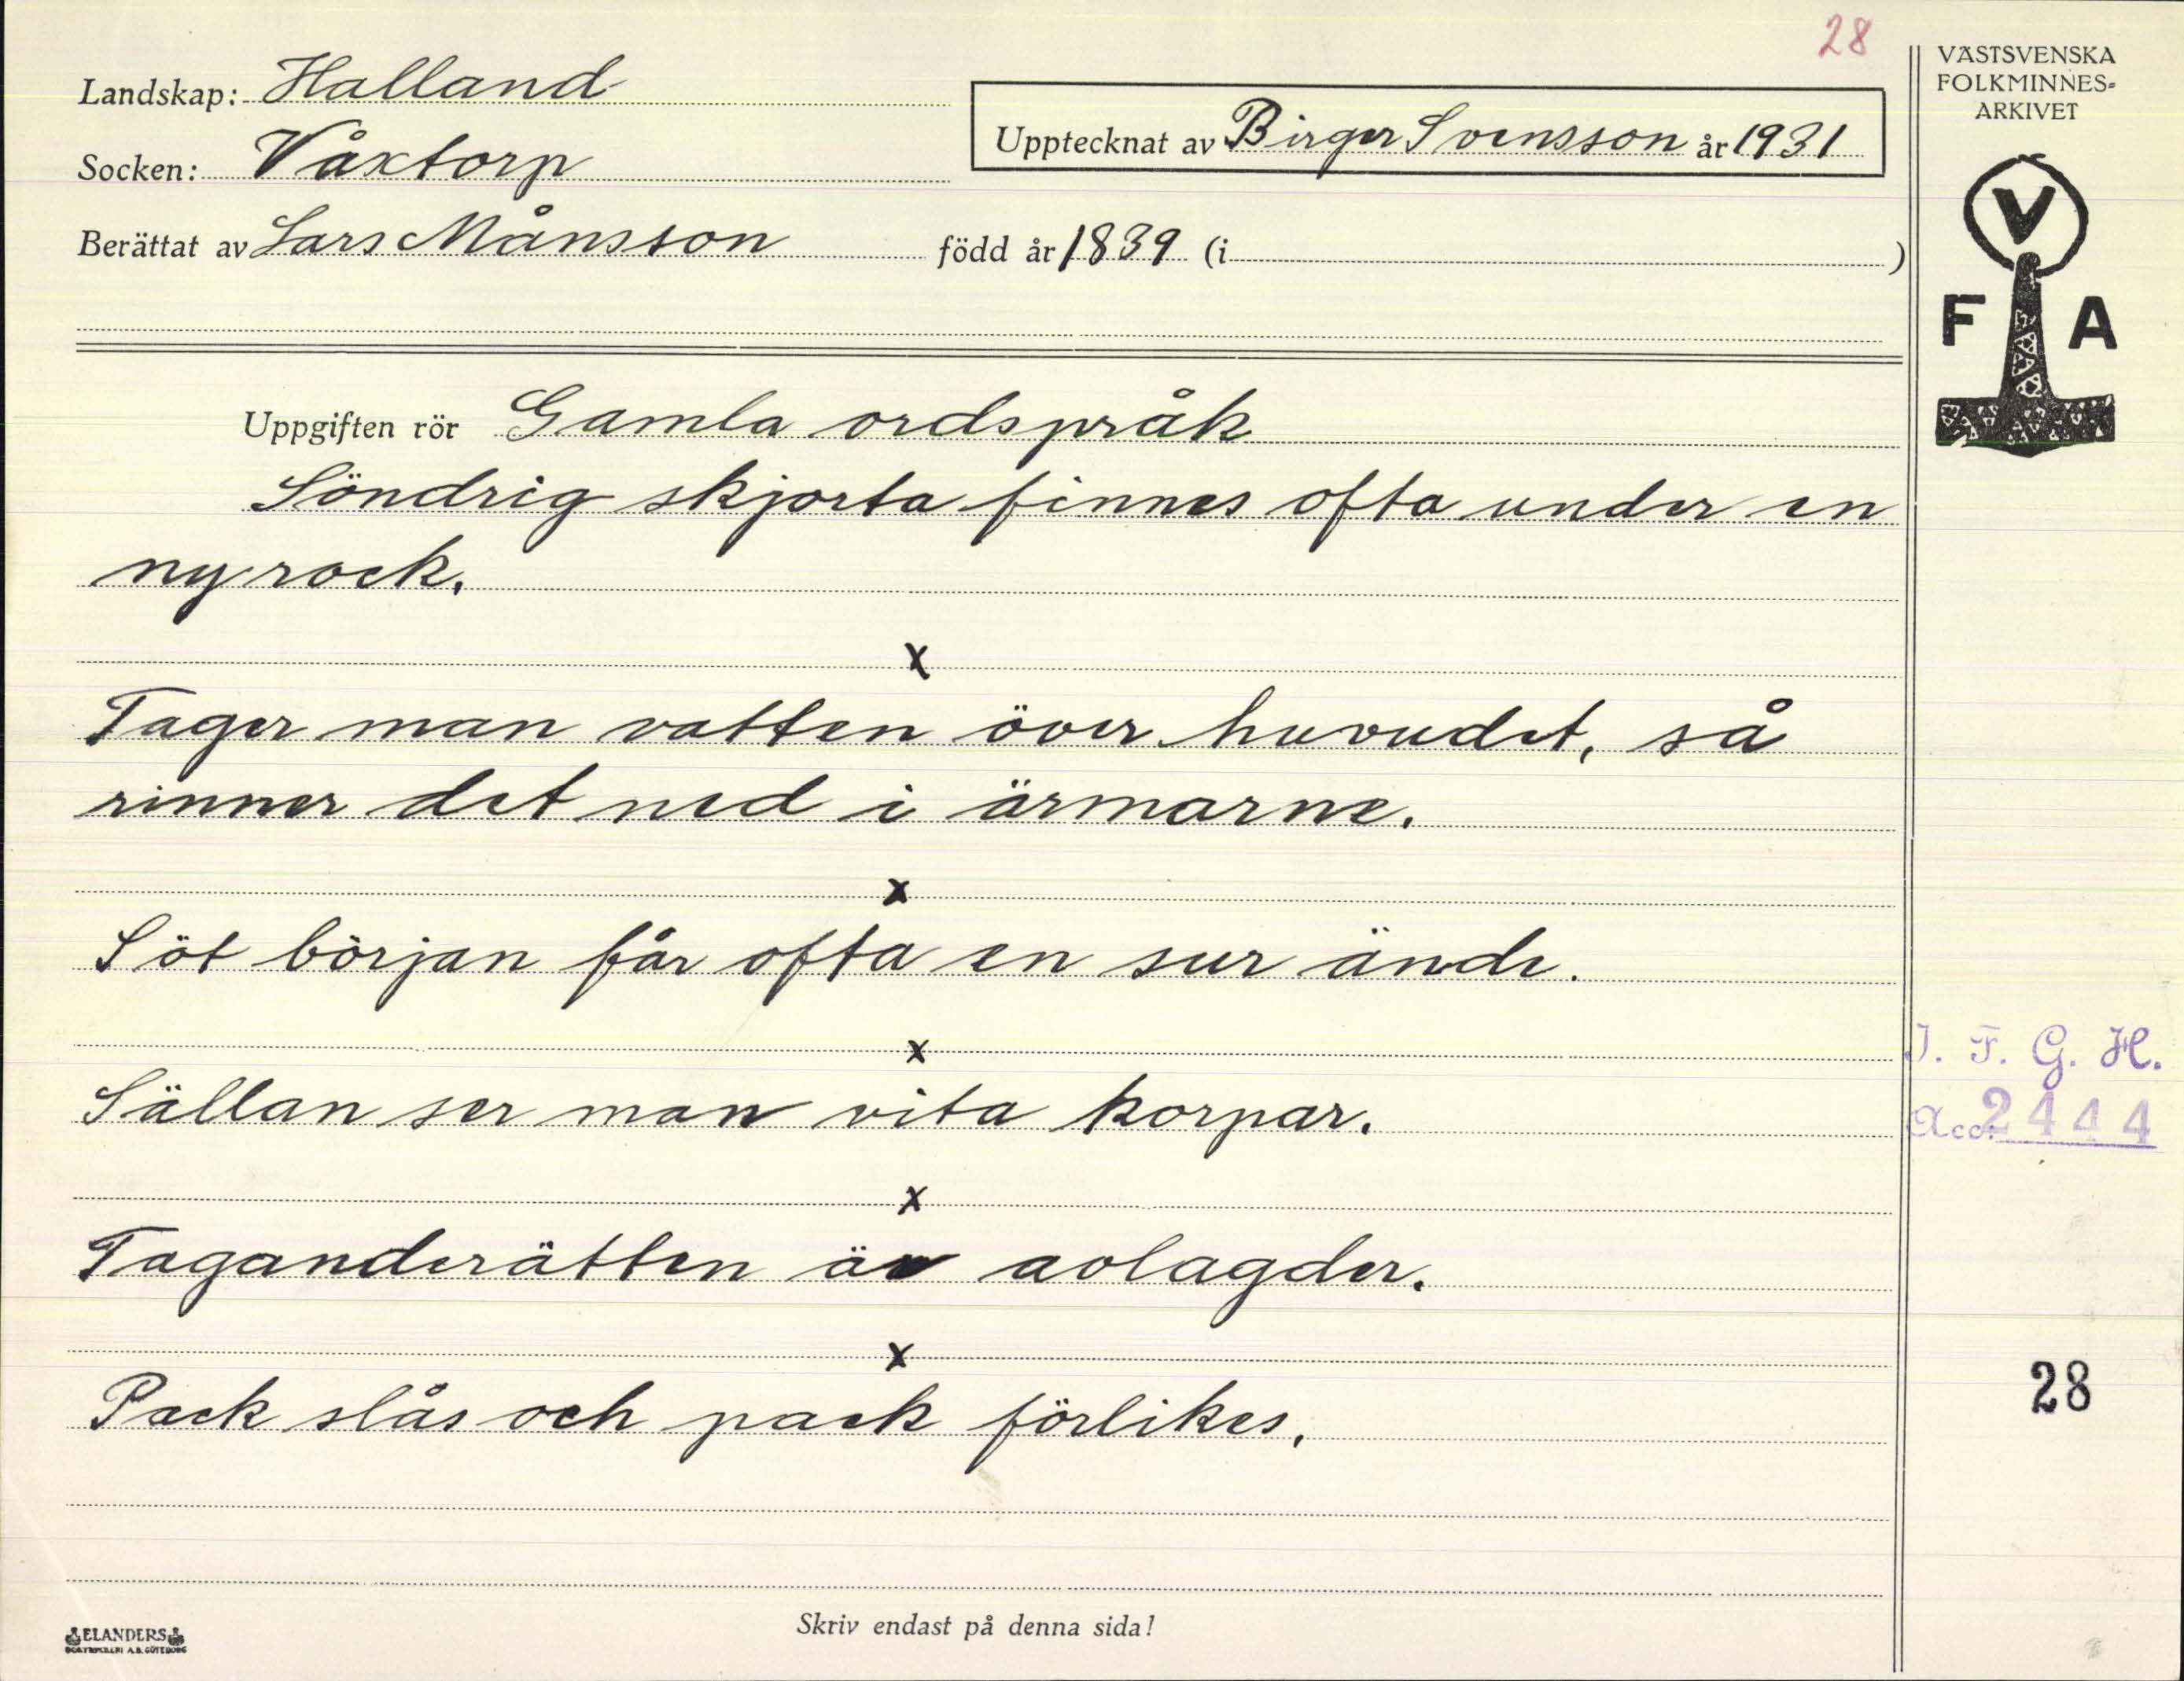 28
Landskap: Halland
Socken: Våxtorp
Berättat av Lars Månsson född år 1839 (i )
Upptecknat av Birger Svensson år 1931
VÄSTSVENSKA
FOLKMINNES-
ARKIVET
V
F A
Uppgiften rör Gamla ordspråk
Söndrig skjorta finnes ofta under en
ny rock.
x
Tager man vatten över huvudet, så
rinner det ned i ärmarne.
x
Söt början får ofta en sur ände.
x
Sällan ser man vita korpar.
x
Taganderätten är avlagder.
x
Pack slås och pack förlikes.
I. F. G. H.
Acc. 2444
28
Skriv endast på denna sida!
ELANDERS
BOKTRYCKERI A.B. GÖTEBORG